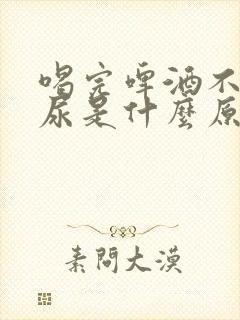 喝完啤酒不
尿是什麼原
素問大漠